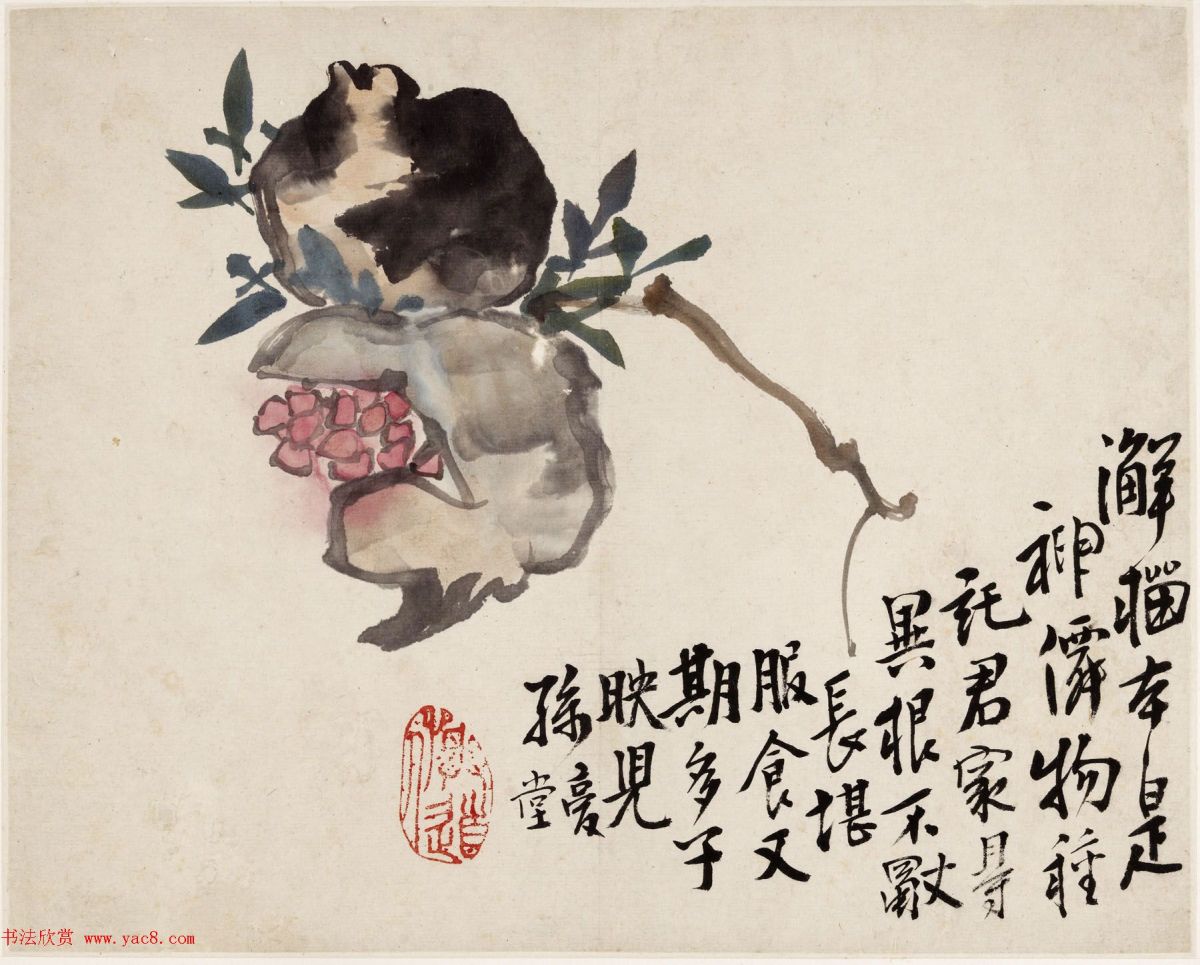 澥榴本是
神僊物種
託君家得
異根不
長堪
服食又
期多子
映兒
孫
堂
书法欣赏 www.yac8.com